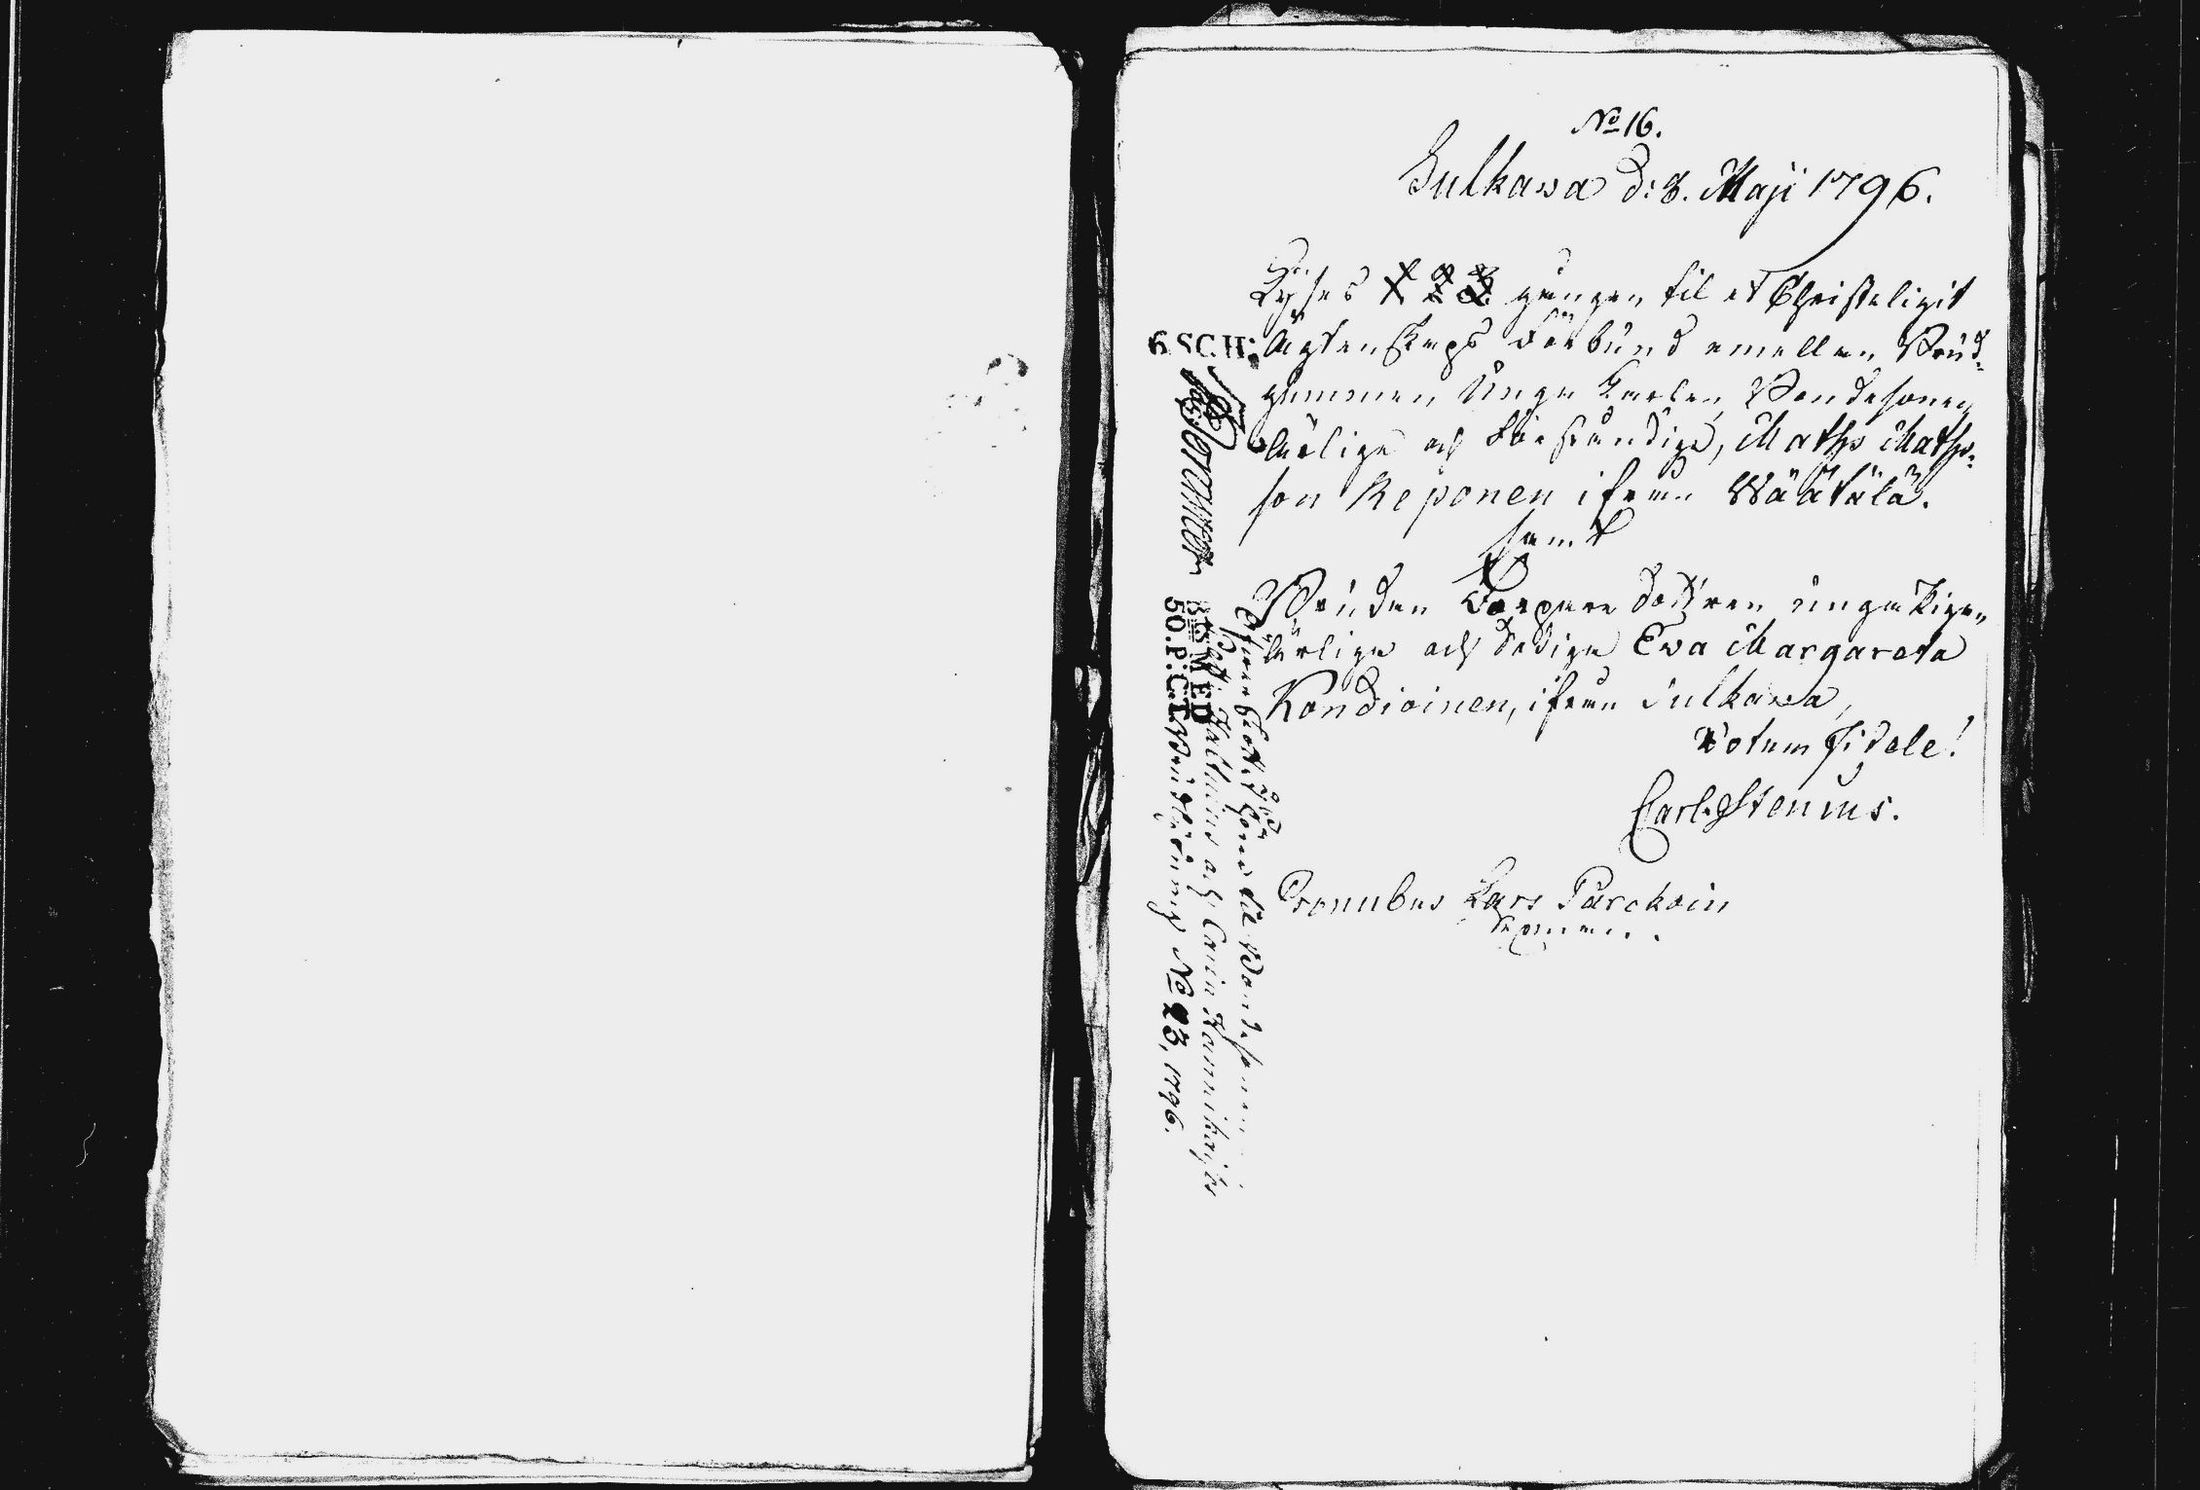 No 16.
Sulkawa d: 8. Maji 1796.
Lyses 1 2 3 gången til et Christeligit
Ägtenskaps Förbund emellan Brud-
gummen Unge Karlen Bondesonen
ärlige och Förståndige, Maths Maths-
son Reponen ifrån Wäätälä.
samt
Bruden Torpare dottren unga Pigan
ärliga och dediga Ewa Margareta
Kondioinen, ifrån Sulkawa,
Votum fidele!
Carl Stenius.
Pronubus Lars Parckoin
6 SCH:
3 S MED
50. P: CT
och Carin
No 23, 1796.